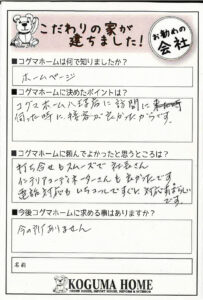 こだわりの家が
建ちました!
お勧めの
会社
■コグマホームは何で知りましたか?
ホームページ
■コグマホームに決めたポイントは?
コグマホーム
伺った時に接客が良かったからです。
■コグマホームに頼んでよかったと思うところは?
打ち合せもスムーズで
インテリアコーディネーターさんも良かったです
電話対応も すぐに対応
です
■今後コグマホームに求める事はありますか?
今の所ありません
名前
KOGUMA HOME